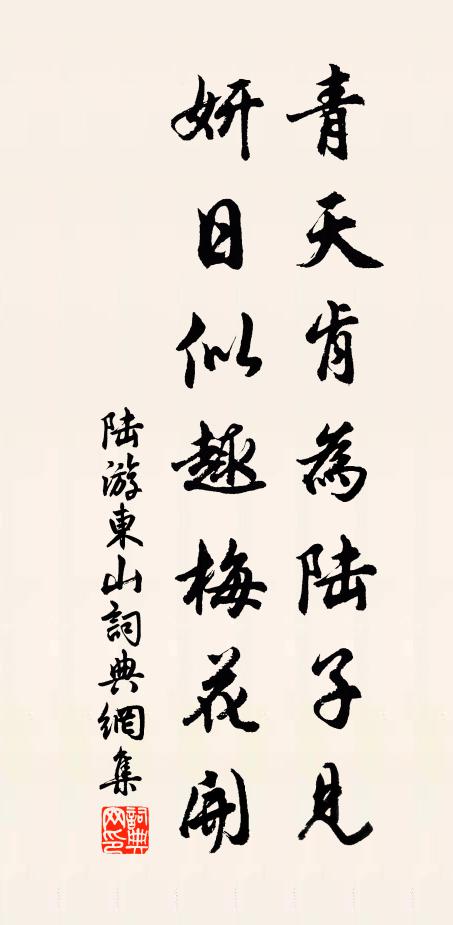 青天肯為陸子見
妍日似趣梅花開
陸游東山詞典網集
詞典網印